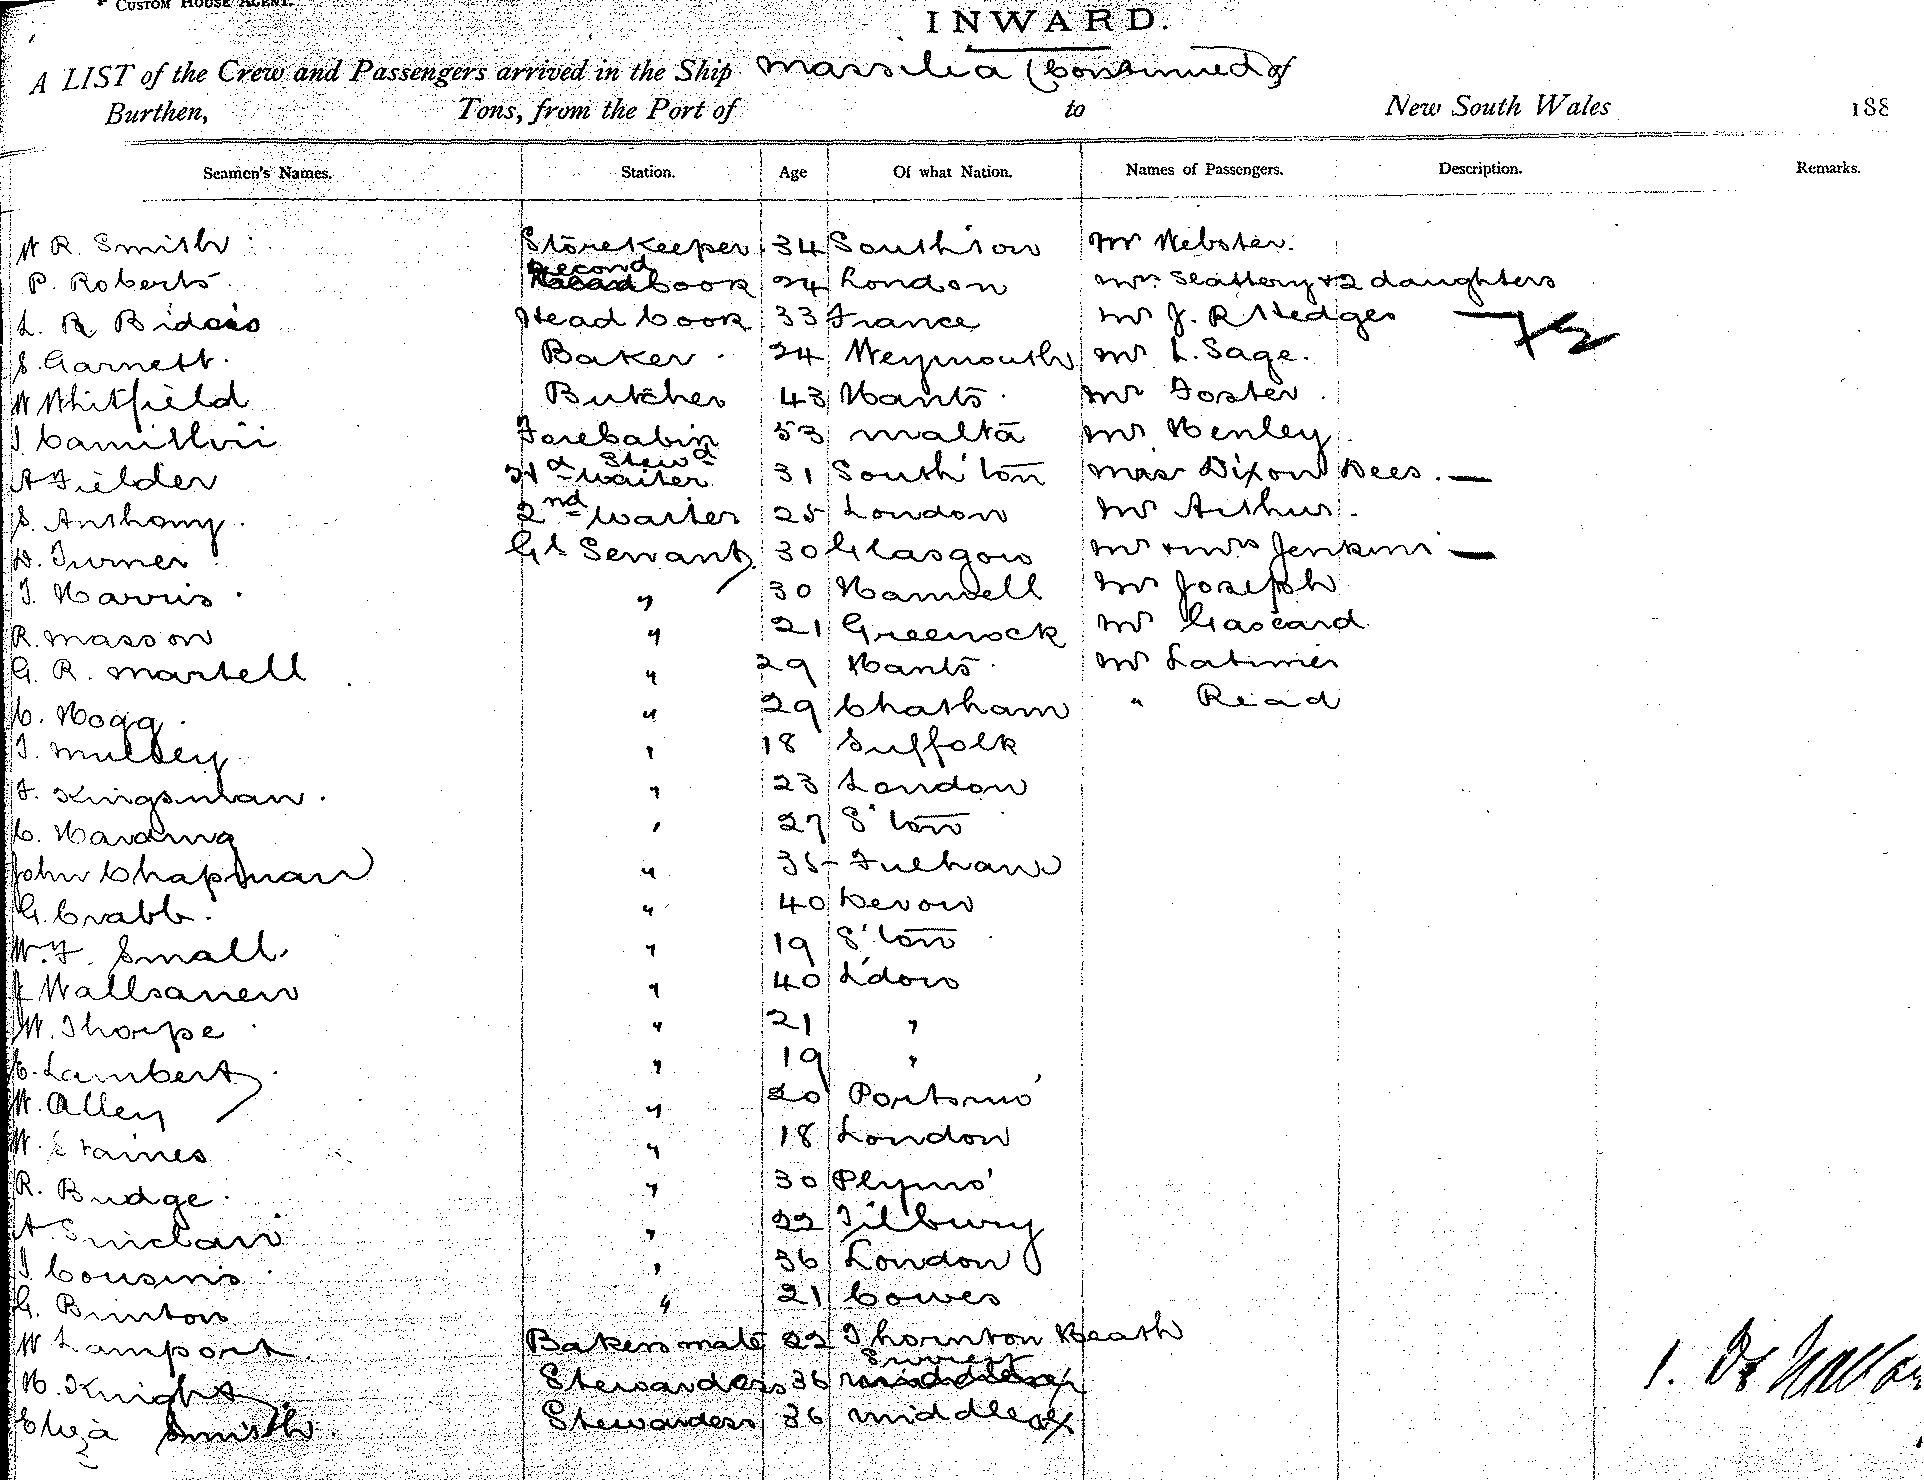 CUSTOM HOUSE AGENT.
INWARD.
A LIST of the Crew and Passengers arrived in the Ship Massilia (Continued) of
Burthen, Tons, from the Port of to New South Wales 188
Seamen's Names. Station. Age Of what Nation. Names of Passengers. Description. Remarks.
W R Smith Storekeeper 34 South'ton Mr Webster.
P. Roberts Second Cook 24 London Mr Slattery & 2 daughters
L. R 33 France Mr J. R Hedges
Head Cook
S. Garnett. Baker 24 Weymouth Mr L. Sage.
W Whitfield Butcher 43 Hants Mr Foster
J Camilleri Forecabin Stewd 53 Malta Mr Henley
A Fielder Hd waiter 31 South'ton Miss Dixon Dees. —
S. Anthony. 2nd Waiter 25 London Mr Arthur.
D. Turner Gl Servant 30 Glasgow Mr & Mrs Jenkins —
T. Harris " 30 Hanwell Mr Joseph
R. Masson " 21 Greenock Mr Gascard
G. R. Martell " 29 Hants Mr Latimer
C. Hogg. " 29 Chatham " Read
T. Mulley " 18 Suffolk
F. Kingsman. " 23 London
C. Harding " 27 S'ton
John Chapman " 35 Fulham
G. Crabb. " 40 Devon
W. F. Small. " 19 S'ton
J " 40 L'don
W. Thorpe " 21 "
C. Lambert " 19 "
W. Alley " 20 Portsmo'
W. Staines " 18 London
R. Budge. " 30 Plymo'
A Sinclair " 22 Tilbury
J. Cousins " 36 London
G. Brinton " 21 Cowes
W Lamport Bakers mate 22 Thornton Heath
H. Knight Stewardess 36 Surrey
Eliza Smith. Stewardess 36 Middlesex
1.